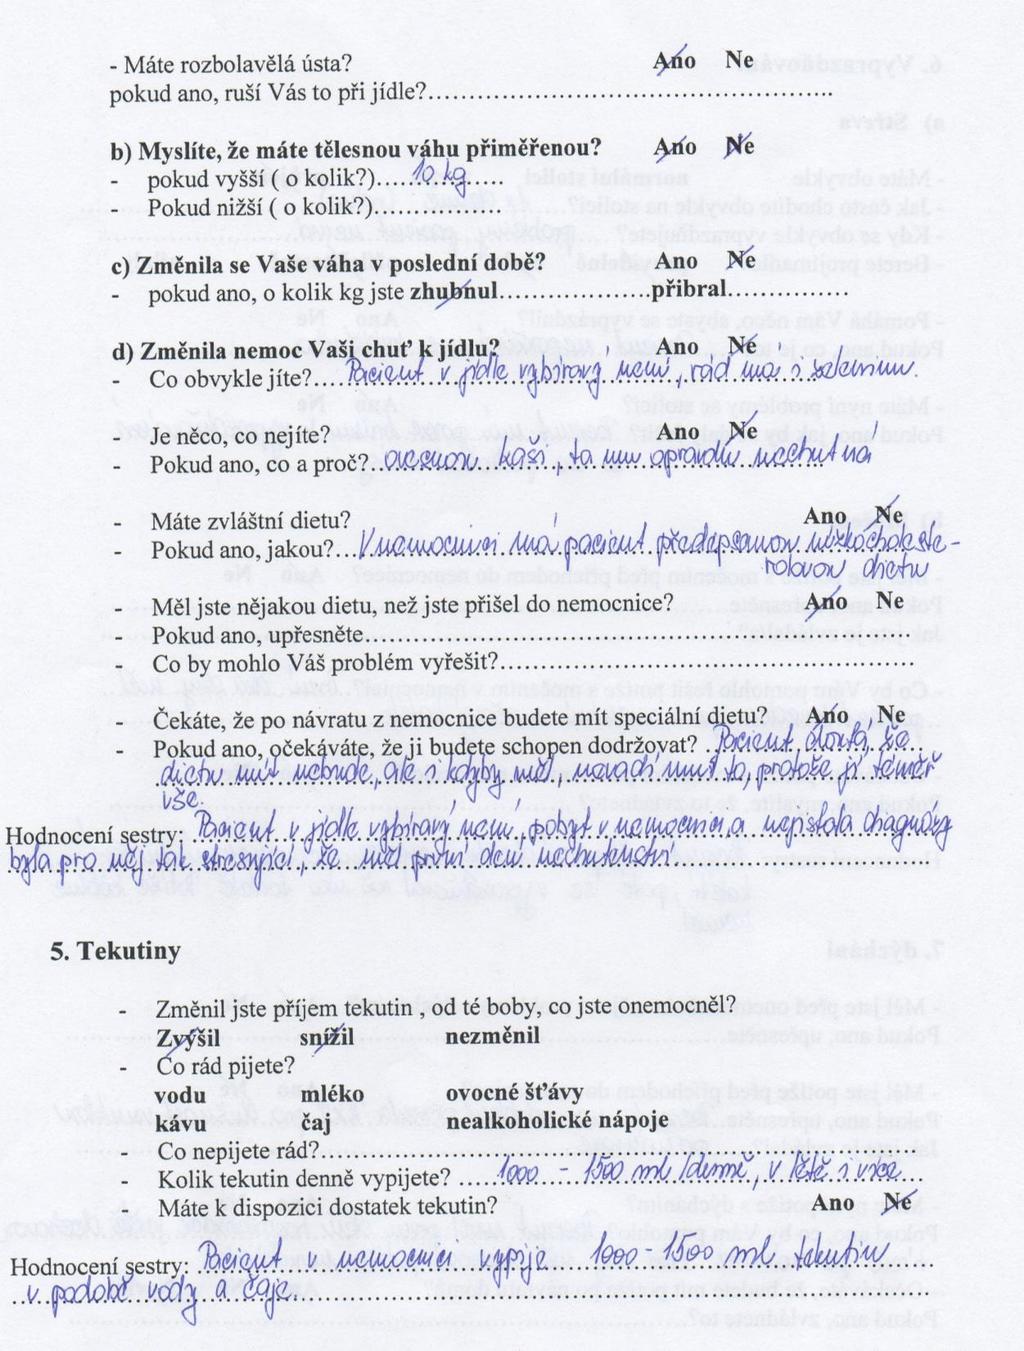 - Máte rozbolavělá ústa? Ano Ne
pokud ano, ruší Vás to při jídle?
b) Myslíte, že máte tělesnou váhu přiměřenou? Ano Ne
- pokud vyšší ( o kolik?) 10 kg
- Pokud nižší ( o kolik?)
c) Změnila se Vaše váha v poslední době? Ano Ne
- pokud ano, o kolik kg jste zhubnul přibral
d) Změnila nemoc Vaši chuť k jídlu? Ano Ne
- Co obvykle jíte? Pacient v jídle vybíravý není, rád má i zeleninu.
- Je něco, co nejíte? Ano Ne
- Pokud ano, co a proč? ovesnou kaši, ta mu opravdu nechutná
- Máte zvláštní dietu? Ano Ne
- Pokud ano, jakou? V nemocnici má pacient předepsanou nízkocholeste-
rolovou dietu
- Měl jste nějakou dietu, než jste přišel do nemocnice? Ano Ne
- Pokud ano, upřesněte
- Co by mohlo Váš problém vyřešit?
- Čekáte, že po návratu z nemocnice budete mít speciální dietu? Ano Ne
- Pokud ano, očekáváte, že ji budete schopen dodržovat? Pacient doufá, že
dietu mít nebude, ale i kdyby měl, nevadí mu to, protože jí téměř
vše.
Hodnocení sestry: Pacient v jídle vybíravý není, pobyt v nemocnici a nejistota diagnózy
byla pro něj tak stresující, že měl první dení nechutenství.
5. Tekutiny
- Změnil jste příjem tekutin , od té boby, co jste onemocněl?
Zvýšil snížil nezměnil
- Co rád pijete?
vodu mléko ovocné šťávy
kávu čaj nealkoholické nápoje
- Co nepijete rád?
- Kolik tekutin denně vypijete? 1000 - 1500 ml /denně, v létě i více
- Máte k dispozici dostatek tekutin? Ano Ne
Hodnocení sestry: Pacient v nemocnici vypije 1000 - 1500 ml tekutin
v podobě vody a čaje.